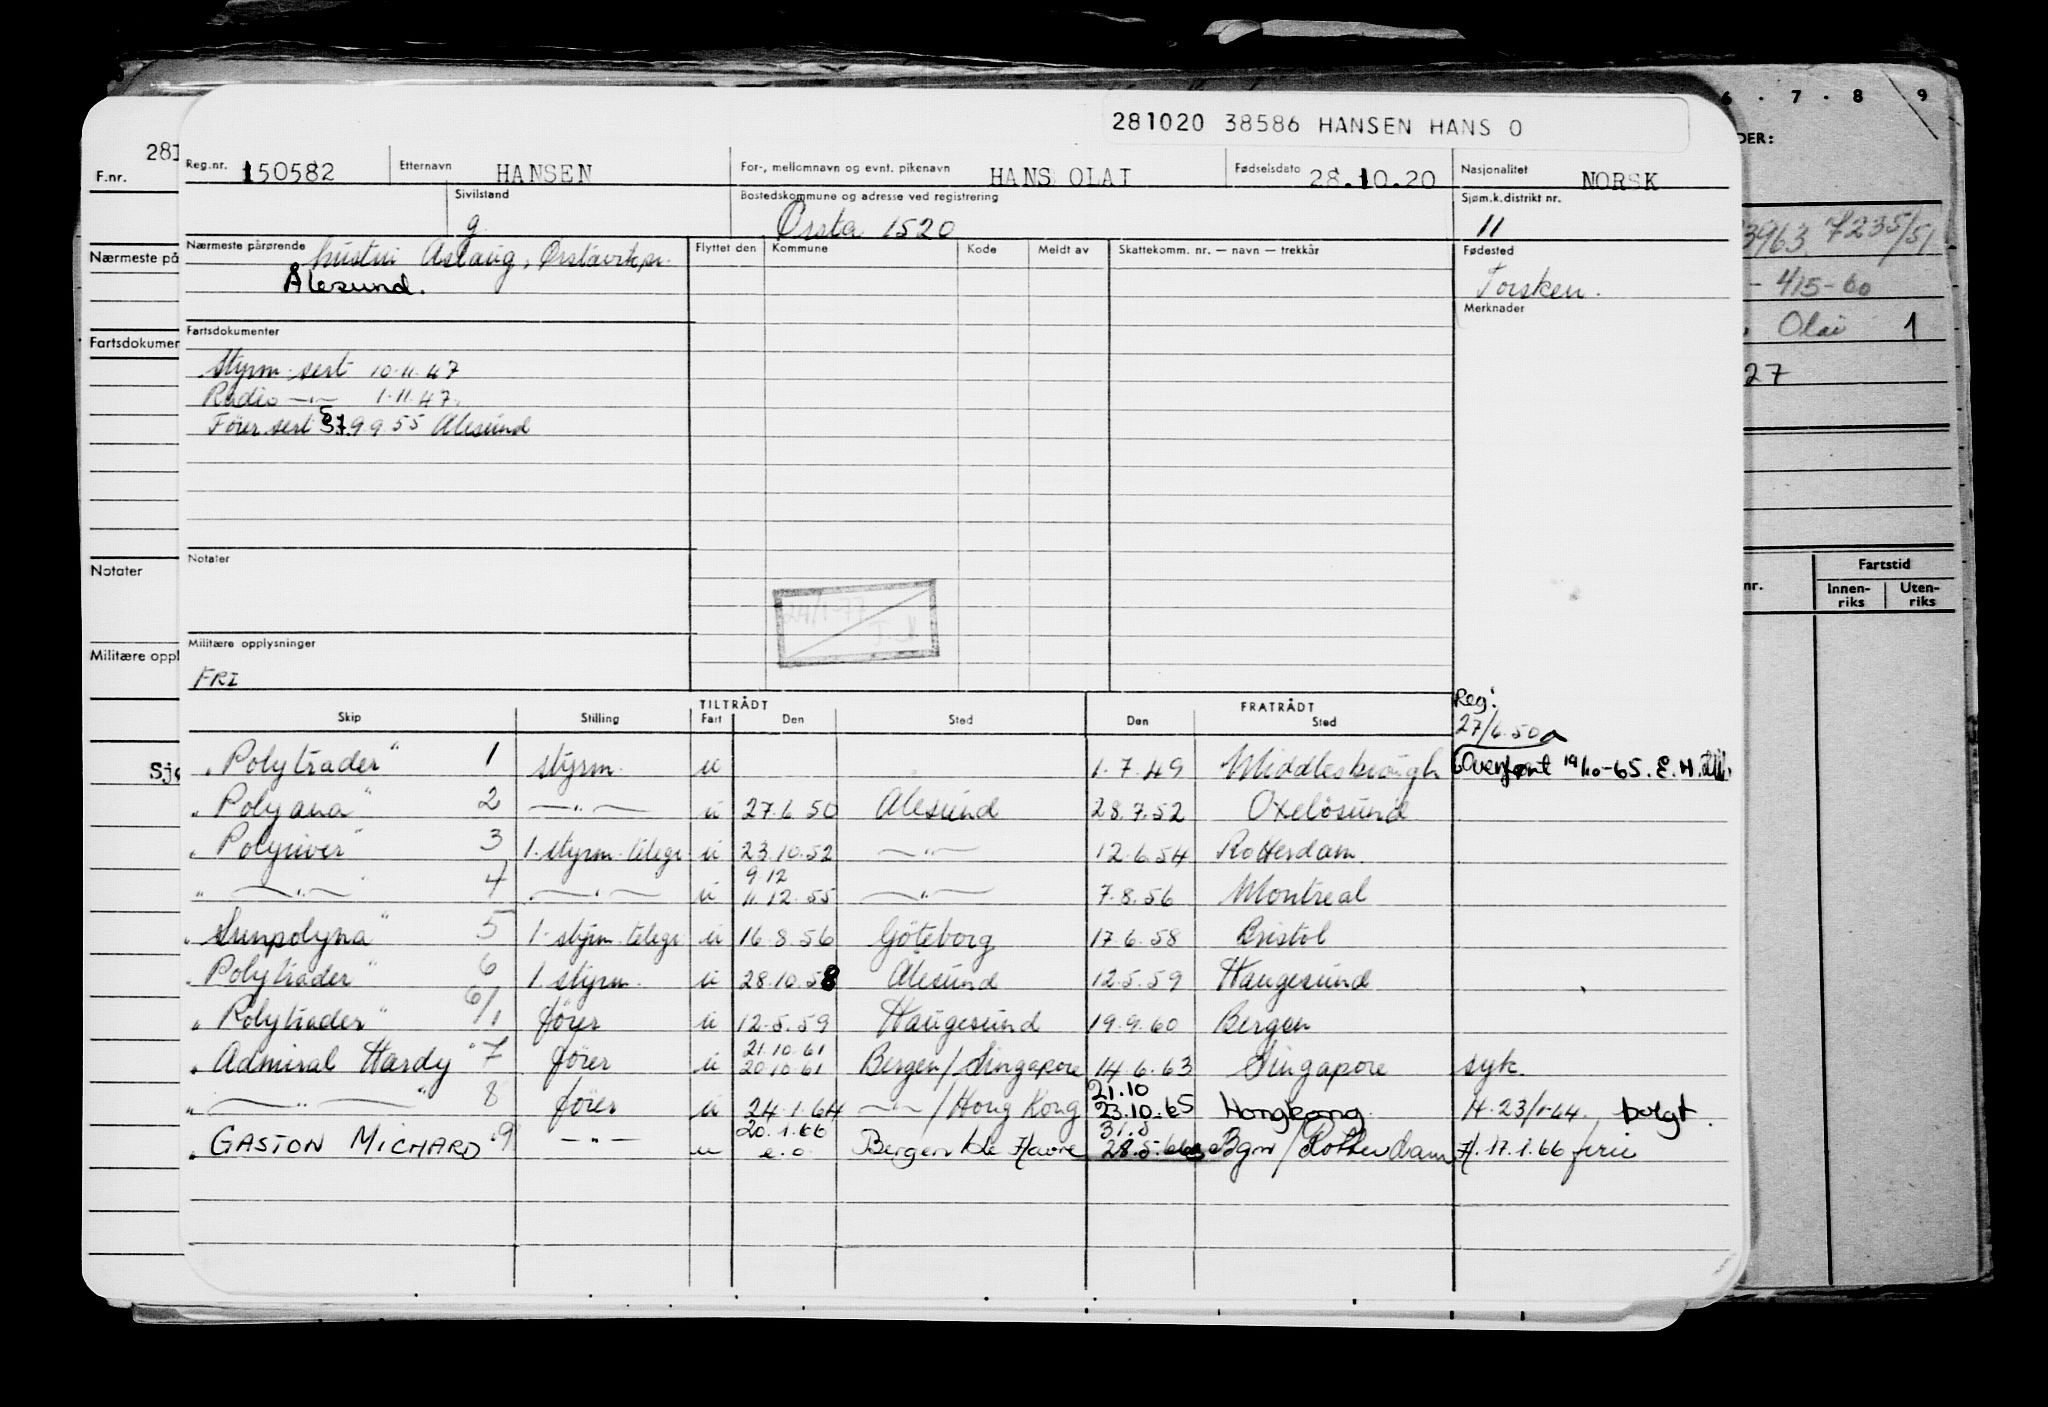 281020 38586 HANSEN HANS O
6 . 7 . 8 . 9
DER:
281
F.nr.
Reg.nr. 150582 Etternavn HANSEN For-, mellomnavn og evnt. pikenavn HANS OLAI Fødselsdato 28.10.20 Nasjonalitet NORSK
Sivilstand g Bostedskommune og adresse ved registrering Ørsta 1520 Sjøm.k.distrikt nr. 11
3963 7235/51
Nærmeste på
Nærmeste pårørende hustru Aslaug, Ørstavik pr.
Ålesund.
Flyttet den Kommune Kode Meldt av Skattekomm. nr. — navn — trekkår Fødested
Torsken.
- 415-60
Merknader
Olai 1
Fartsdokumen
Fartsdokumenter
Styrm. sert 10.11.47
27
Radio —"— 1.11.47.
Fører sert 9.9.55 Alesund
Notater
Notater
24/1-77
nr. Fartstid
Innen-riks Uten-riks
Militære oppl
Militære opplysninger
FRI
TILTRÅDT FRATRÅDT
Skip Stilling Fart Den Sted Den Sted
Reg:
27/6.50
Sjø
"Polytrader" 1 styrm. u 1.7.49 Middlesbrough Overført 19/10-65. E.H.
"Polyana" 2 —"— u 27.6.50 Alesund 28.7.52 Oxelösund
"Polyriver" 3 1. styrm. telegr u 23.10.52 —"— 12.6.54 Rotterdam
9 12
" —"— " 4 —"— u 11.12.55 —"— 7.8.56 Montreal
"Sunpolyna" 5 1. styrm. telegr u 16.8.56 Göteborg 17.6.58 Bristol
"Polytrader" 6 1. styrm. u 28.10.58 Alesund 12.5.59 Haugesund
"Polytrader" 6/1 fører u 12.5.59 Haugesund 19.9.60 Bergen
21.10.61
"Admiral Hardy" 7 fører u 20.10.61 Bergen/Singapore 14.6.63 Singapore syk.
21.10
" —"— " 8 fører u 24.1.64 —"—/Hong Kong 23.10.65 Hongkong. H. 23/1-64. bolgt.
20.1.66 31.5
"GASTON MICHARD" 9 —"— u e.o. Bergen /Le Havre 28.5.66 Bgn/Rotterdam H. 17.1.66 ferie